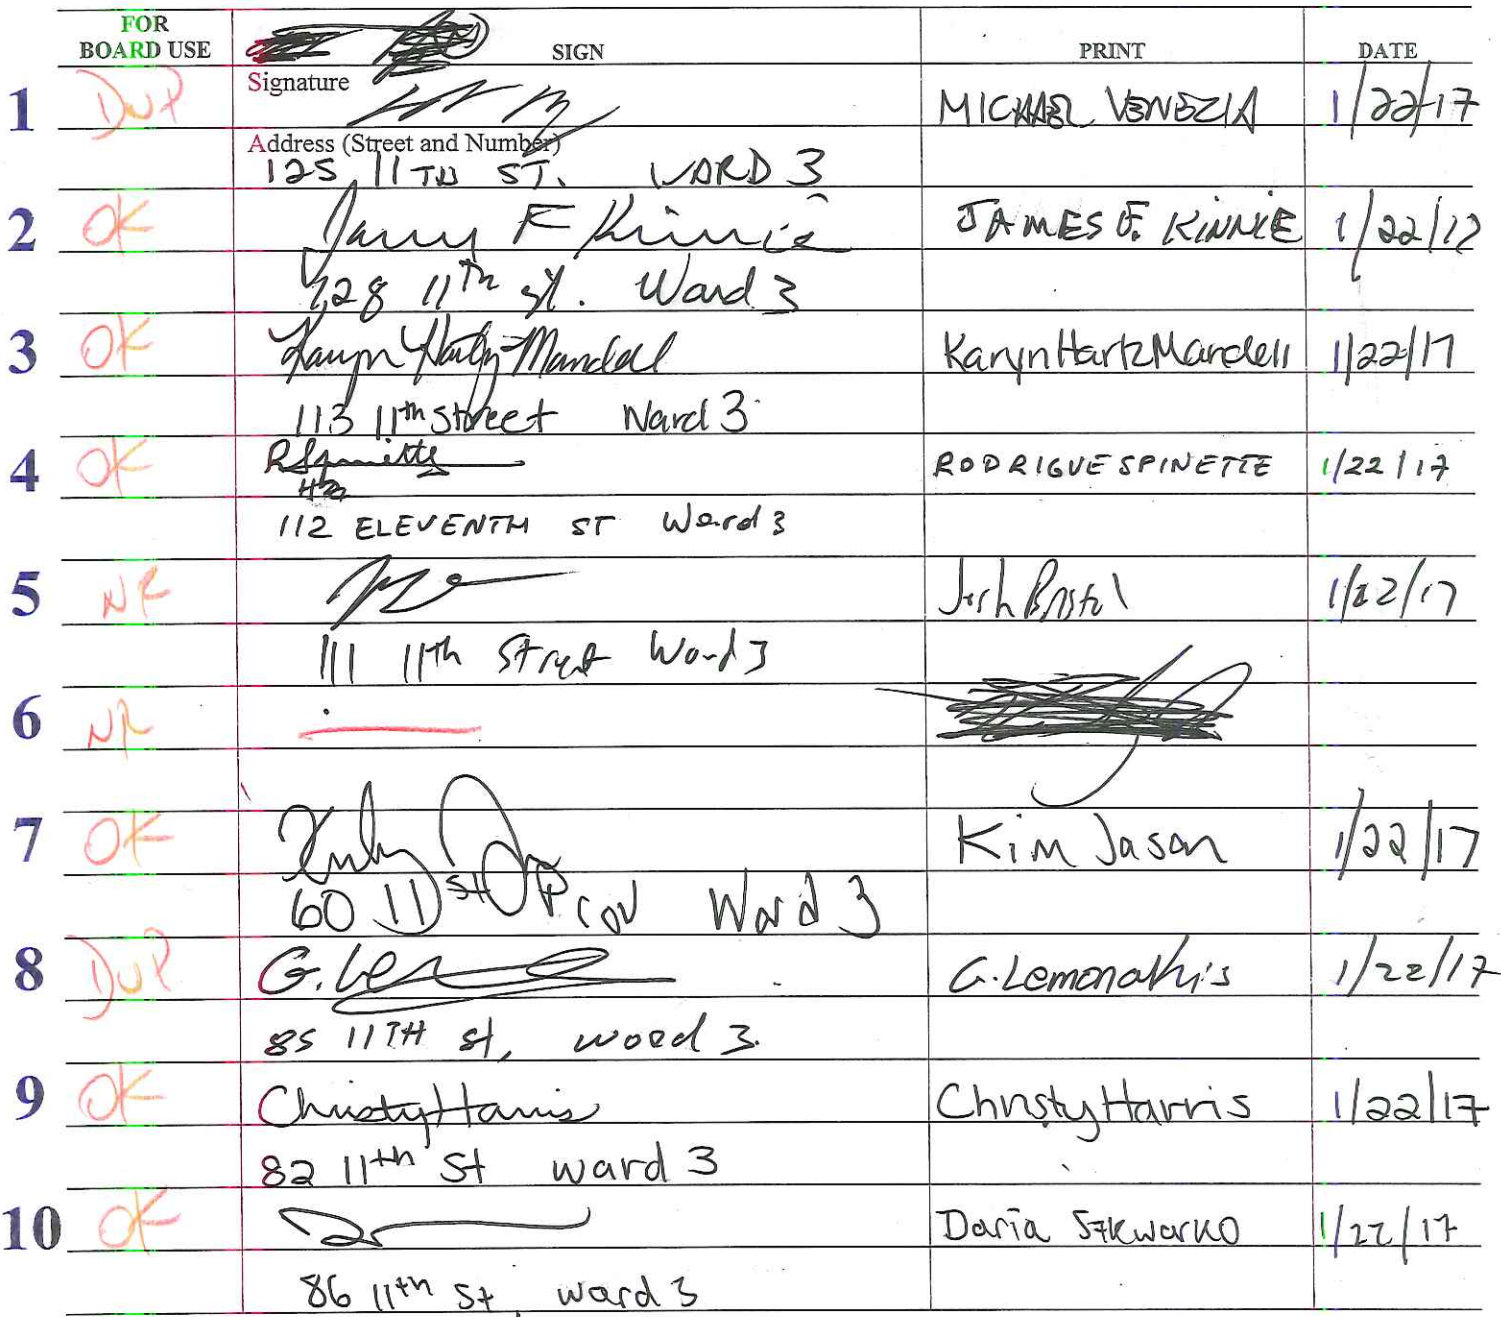 FOR BOARD USE SIGN PRINT DATE
Signature
1 DUP MICHAEL VENEZIA 1/22/17
Address (Street and Number)
125 11TH ST. WARD 3
2 OK James F Kinnie JAMES F. KINNIE 1/22/17
128 11th st. Ward 3
3 OK Karyn Hartz-Mandell Karyn Hartz Mandell 1/22/17
113 11th Street Ward 3
4 OK R Spinette RODRIGUE SPINETTE 1/22/17
112 ELEVENTH ST Ward 3
5 NR Josh Bristol 1/22/17
111 11th Street Ward 3
6 NR
7 OK Kim Jason 1/22/17
60 11 st Prov Ward 3
8 DUP G. Lemonakis 1/22/17
85 11TH st, Word 3
9 OK Christy Harris Christy Harris 1/22/17
82 11th St ward 3
10 OK Daria Szkwarko 1/22/17
86 11th St, ward 3